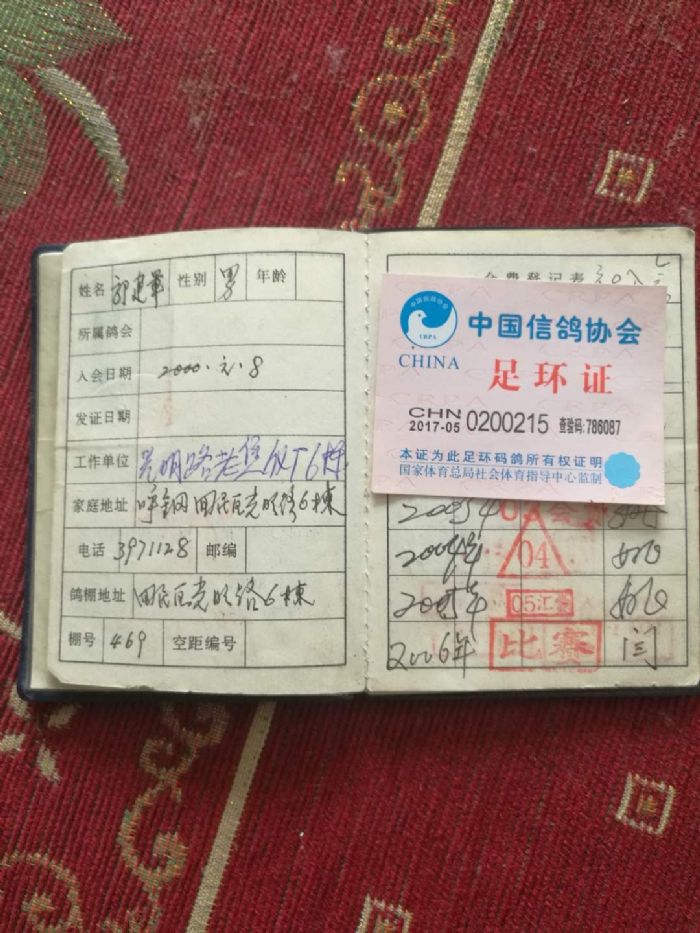 姓名 郭建军 性别 男 年龄
所属鸽会
入会日期 2000.元.8
发证日期
工作单位
家庭地址 呼钢回民区光明路6栋
电话 3971128 邮编
鸽棚地址 回民区光明路6栋
棚号 469 空距编号
会费登记表
中国信鸽协会
CRPA
CHINA
足环证
CHN
2017-05 0200215 查验码:786087
本证为此足环码鸽所有权证明
国家体育总局社会体育指导中心监制
2003年
2004年 04
2005年 05汇
2006年 比赛 闫